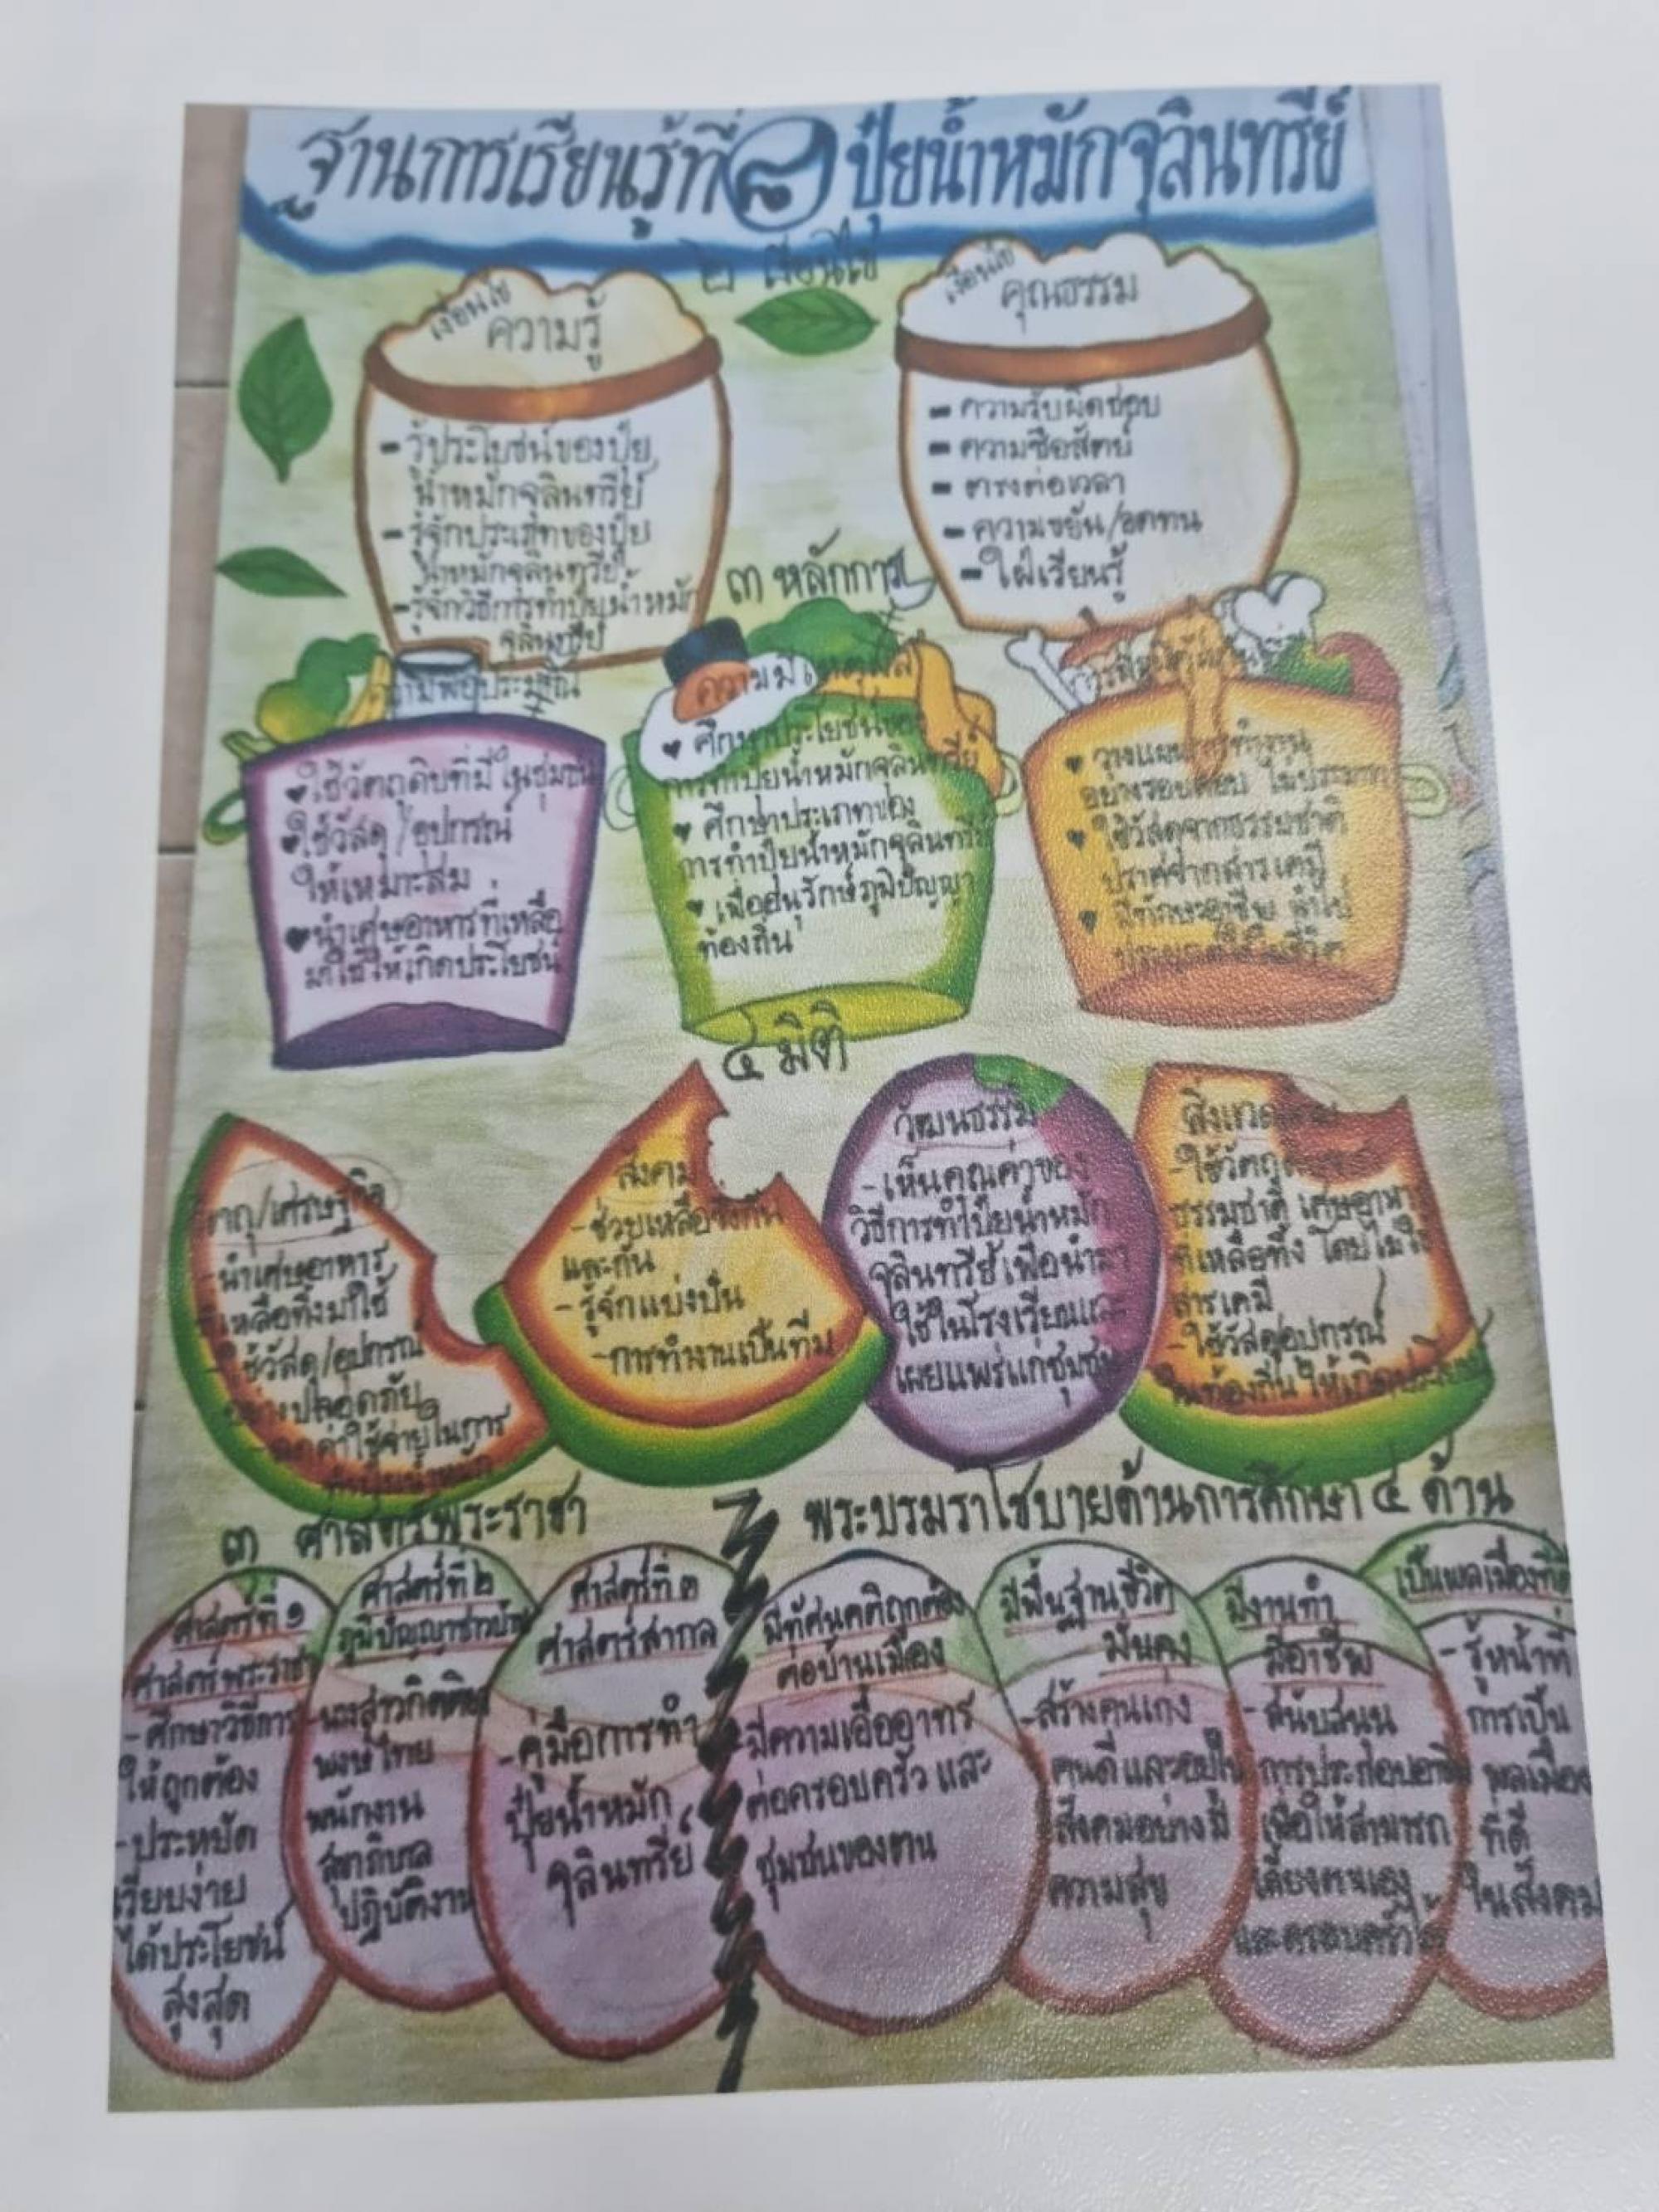 ฐานการเรียนรู้ที่ ๘ ปุ๋ยน้ำหมักจุลินทรีย์
๒ เงื่อนไข
เงื่อนไข
ความรู้
- รู้ประโยชน์ของปุ๋ย
น้ำหมักจุลินทรีย์
- รู้จักประเภทของปุ๋ย
น้ำหมักจุลินทรีย์
- รู้จักวิธีการทำปุ๋ยน้ำหมัก
จุลินทรีย์
เงื่อนไข
คุณธรรม
- ความรับผิดชอบ
- ความซื่อสัตย์
- ตรงต่อเวลา
- ความขยัน/อดทน
- ใฝ่เรียนรู้
๓ หลักการ
ความพอประมาณ
ใช้วัตถุดิบที่มีในชุมชน
ใช้วัสดุ/อุปกรณ์
ให้เหมาะสม
นำเศษอาหารที่เหลือ
มาใช้ให้เกิดประโยชน์
ความมีเหตุผล
ศึกษาประโยชน์ของ
การทำปุ๋ยน้ำหมักจุลินทรีย์
ศึกษาประเภทของ
การทำปุ๋ยน้ำหมักจุลินทรีย์
เพื่ออนุรักษ์ภูมิปัญญา
ท้องถิ่น
วางแผนการทำงาน
อย่างรอบคอบ ไม่ประมาท
ใช้วัสดุจากธรรมชาติ
ปราศจากสารเคมี
มีทักษะอาชีพ นำไป
ประยุกต์ใช้ในชีวิต
๔ มิติ
วัตถุ/เศรษฐกิจ
- นำเศษอาหาร
ที่เหลือทิ้งมาใช้
- ใช้วัสดุ/อุปกรณ์
อย่างปลอดภัย
- ลดค่าใช้จ่ายในการ
สังคม
- ช่วยเหลือซึ่งกัน
และกัน
- รู้จักแบ่งปัน
- การทำงานเป็นทีม
วัฒนธรรม
- เห็นคุณค่าของ
วิธีการทำปุ๋ยน้ำหมัก
จุลินทรีย์ เพื่อนำมา
ใช้ในโรงเรียนและ
เผยแพร่แก่ชุมชน
สิ่งแวดล้อม
- ใช้วัตถุดิบจาก
ธรรมชาติ เศษอาหาร
ที่เหลือทิ้ง โดยไม่ใช้
สารเคมี
- ใช้วัสดุอุปกรณ์
ในท้องถิ่นให้เกิดประโยชน์
๓ ศาสตร์พระราชา
ศาสตร์ที่ ๑
ศาสตร์พระราชา
- ศึกษาวิธีการ
ให้ถูกต้อง
- ประหยัด
เรียบง่าย
ได้ประโยชน์
สูงสุด
ศาสตร์ที่ ๒
ภูมิปัญญาชาวบ้าน
- นางสาวกิตติมา
พงษ์ไทย
พนักงาน
สุขาภิบาล
ปฏิบัติงาน
ศาสตร์ที่ ๓
ศาสตร์สากล
- คู่มือการทำ
ปุ๋ยน้ำหมัก
จุลินทรีย์
พระบรมราโชบายด้านการศึกษา ๔ ด้าน
มีทัศนคติถูกต้อง
ต่อบ้านเมือง
- มีความเอื้ออาทร
ต่อครอบครัว และ
ชุมชนของตน
มีพื้นฐานชีวิต
มั่นคง
- สร้างคนเก่ง
คนดี และอยู่ใน
สังคมอย่างมี
ความสุข
มีงานทำ
มีอาชีพ
- สนับสนุน
การประกอบอาชีพ
เพื่อให้สามารถ
เลี้ยงตนเอง
และครอบครัวได้
เป็นพลเมืองที่ดี
- รู้หน้าที่
การเป็น
พลเมือง
ที่ดี
ในสังคม